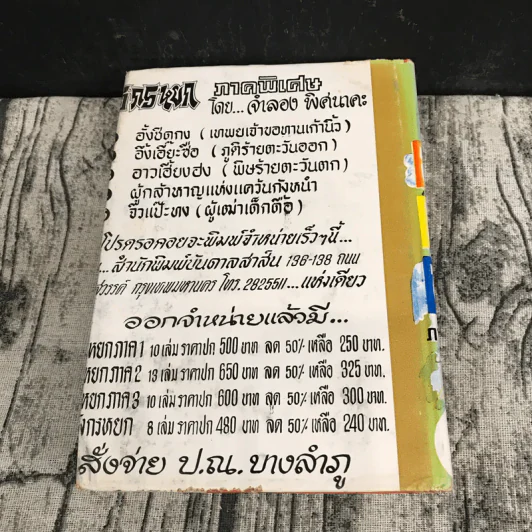 มังกรหยก ภาคพิเศษ
โดย... จำลอง พิศนาคะ
อั้งชิดกง ( เทพยเจ้าขอทานเก้านิ้ว )
อึ้งเอี๊ยะซือ ( ภูติร้ายตะวันออก )
อาวเฮี้ยงฮง ( พิษร้ายตะวันตก )
ผู้กล้าหาญแห่งแคว้นกังหนำ
จิวแป๊ะทง ( ผู้เฒ่าเด็กดื้อ )
โปรดรอคอยจะพิมพ์จำหน่ายเร็วๆนี้...
...สำนักพิมพ์บันดาลสาส์น 136-138 ถนน
สวรรค์ กรุงเทพมหานคร โทร. 282550...แห่งเดียว
ออกจำหน่ายแล้วมี...
หยกภาค 1 10 เล่ม ราคาปก 500 บาท ลด 50% เหลือ 250 บาท.
หยกภาค 2 13 เล่ม ราคาปก 650 บาท ลด 50% เหลือ 325 บาท.
หยกภาค 3 เล่ม ราคาปก 600 บาท ลด 50% เหลือ 300 บาท.
งกรหยก 8 เล่ม ราคาปก 480 บาท ลด 50% เหลือ 240 บาท.
สั่งจ่าย ป.ณ. บางลำภู